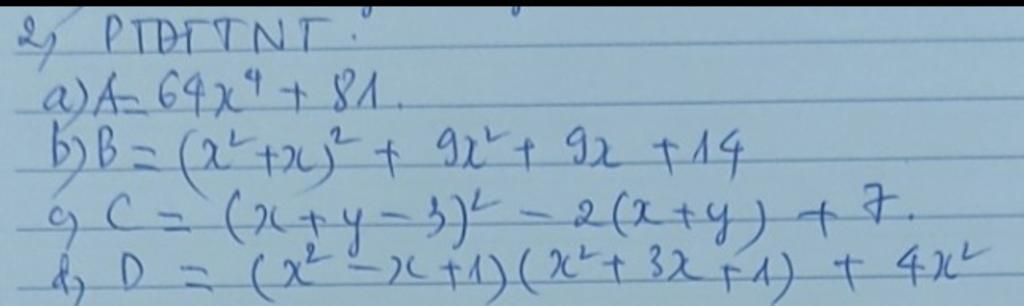 2, PTĐTTNT.
a) A = 64x⁴ + 81.
b) B = (x² + x)² + 9x² + 9x + 14
c, C = (x + y - 3)² - 2(x + y) + 7.
d, D = (x² - x + 1)(x² + 3x + 1) + 4x²